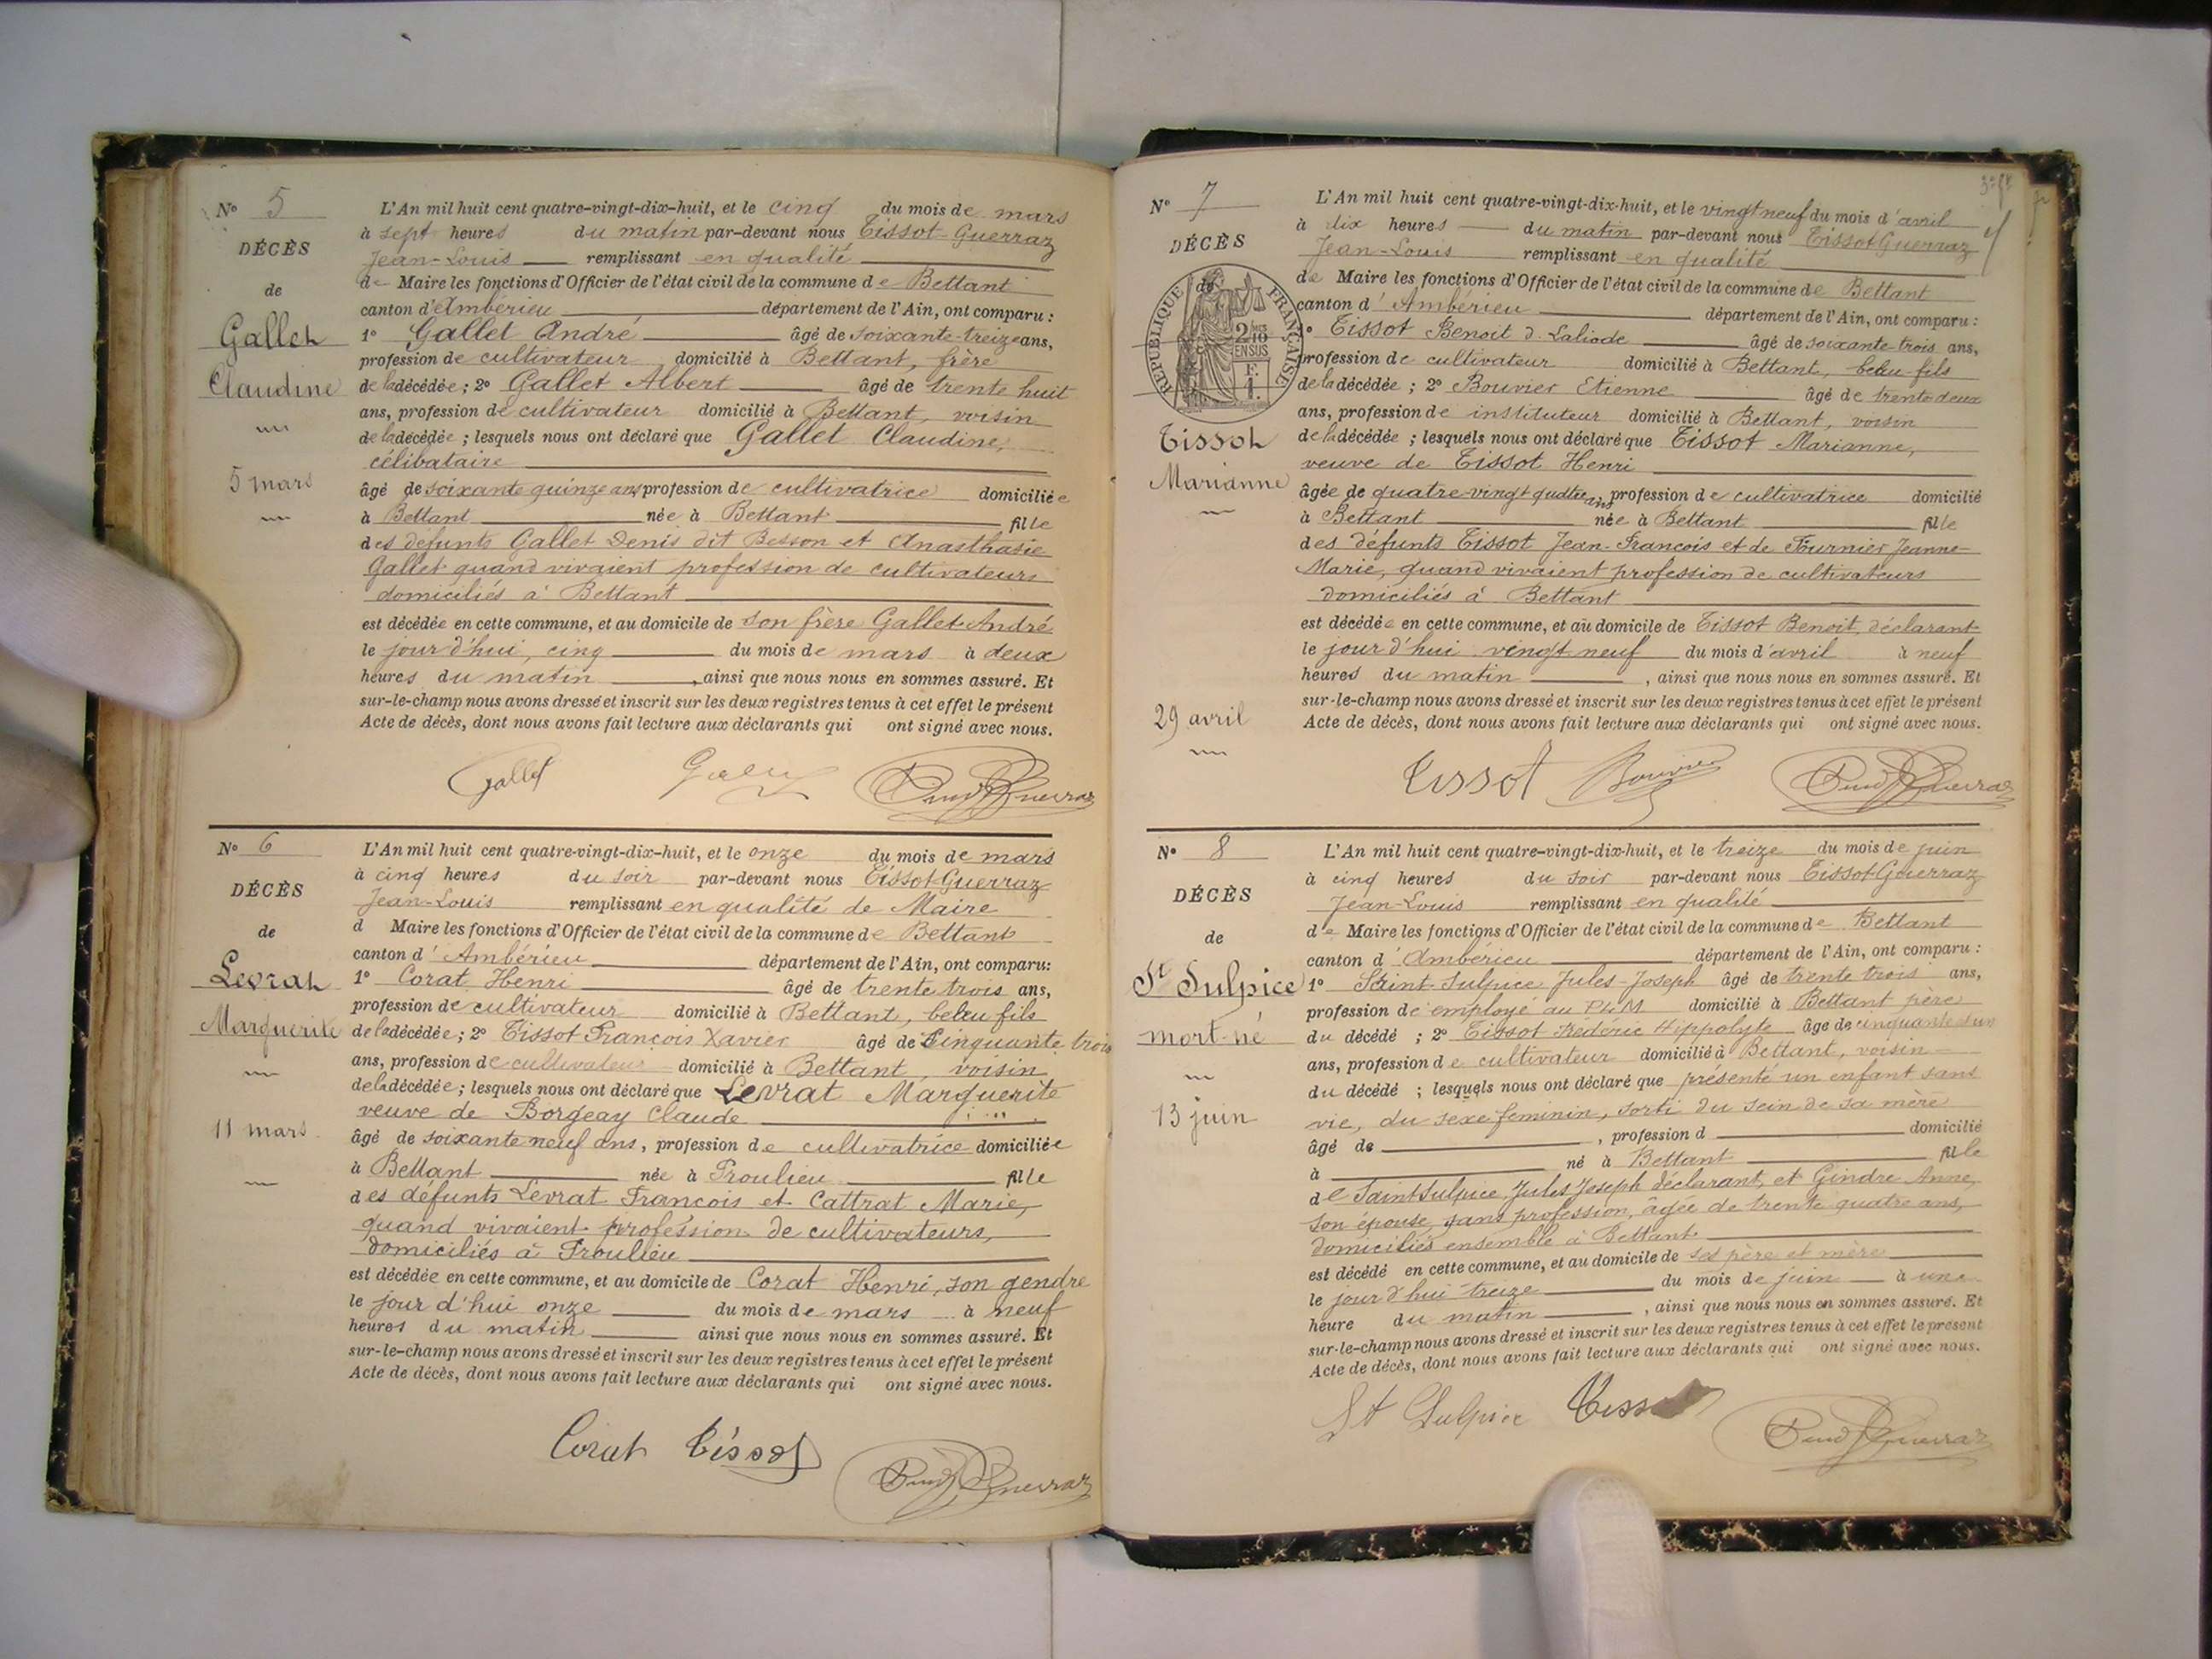 N° 5
DÉCÈS
de
Gallet
Claudine
5 mars
L'An mil huit cent quatre-vingt-dix-huit, et le cinq du mois de mars
à sept heures du matin par-devant nous Tissot-Guerraz
Jean-Louis remplissant en qualité
de Maire les fonctions d'Officier de l'état civil de la commune de Bettant
canton d'Ambérieu département de l'Ain, ont comparu :
1° Gallet André âgé de soixante-treize ans,
profession de cultivateur domicilié à Bettant, frère
de la décédée ; 2° Gallet Albert âgé de trente huit
ans, profession de cultivateur domicilié à Bettant, voisin
de la décédée ; lesquels nous ont déclaré que Gallet Claudine,
célibataire
âgé de soixante quinze ans, profession de cultivatrice domiciliée
à Bettant née à Bettant fille
des défunts Gallet Denis dit Besson et Anasthasie
Gallet quand vivaient profession de cultivateurs
domiciliés à Bettant
est décédée en cette commune, et au domicile de son frère Gallet André
le jour d'hui, cinq du mois de mars à deux
heures du matin, ainsi que nous nous en sommes assuré. Et
sur-le-champ nous avons dressé et inscrit sur les deux registres tenus à cet effet le présent
Acte de décès, dont nous avons fait lecture aux déclarants qui ont signé avec nous.
Gallet
N° 6
DÉCÈS
de
Levrat
Marguerite
11 mars
L'An mil huit cent quatre-vingt-dix-huit, et le onze du mois de mars
à cinq heures du soir par-devant nous Tissot-Guerraz
Jean-Louis remplissant en qualité de Maire
d Maire les fonctions d'Officier de l'état civil de la commune de Bettant
canton d'Ambérieu département de l'Ain, ont comparu:
1° Corat Henri âgé de trente trois ans,
profession de cultivateur domicilié à Bettant, beau fils
de la décédée ; 2° Tissot François Xavier âgé de Cinquante trois
ans, profession de cultivateur domicilié à Bettant, voisin
de la décédée ; lesquels nous ont déclaré que Levrat Marguerite
veuve de Borgeay Claude
âgé de soixante neuf ans, profession de cultivatrice domiciliée
à Bettant née à Proulieu fille
des défunts Levrat François et Cattrat Marie,
quand vivaient profession de cultivateurs,
domiciliés à Proulieu
est décédée en cette commune, et au domicile de Corat Henri, son gendre
le jour d'hui onze du mois de mars à neuf
heures du matin ainsi que nous nous en sommes assuré. Et
sur-le-champ nous avons dressé et inscrit sur les deux registres tenus à cet effet le présent
Acte de décès, dont nous avons fait lecture aux déclarants qui ont signé avec nous.
Corat Tissot
N° 7
DÉCÈS
de
RÉPUBLIQUE FRANÇAISE
2/10 EN SUS
Tissot
Marianne
29 avril
L'An mil huit cent quatre-vingt-dix-huit, et le vingt neuf du mois d'avril
à dix heures du matin par-devant nous Tissot Guerraz
Jean-Louis remplissant en qualité
de Maire les fonctions d'Officier de l'état civil de la commune de Bettant
canton d'Ambérieu département de l'Ain, ont comparu :
1° Tissot Benoit d. Laliode âgé de soixante-trois ans,
profession de cultivateur domicilié à Bettant, beau-fils
de la décédée ; 2° Bouvier Etienne âgé de trente deux
ans, profession de instituteur domicilié à Bettant, voisin
de la décédée ; lesquels nous ont déclaré que Tissot Marianne,
veuve de Tissot Henri
âgée de quatre-vingt quatre ans, profession de cultivatrice domicilié
à Bettant née à Bettant fille
des défunts Tissot Jean-François et de Fournier Jeanne-
Marie, quand vivaient profession de cultivateurs
domiciliés à Bettant
est décédée en cette commune, et au domicile de Tissot Benoit, déclarant
le jour d'hui vingt neuf du mois d'avril à neuf
heures du matin, ainsi que nous nous en sommes assuré. Et
sur-le-champ nous avons dressé et inscrit sur les deux registres tenus à cet effet le présent
Acte de décès, dont nous avons fait lecture aux déclarants qui ont signé avec nous.
Tissot Bouvier
N° 8
DÉCÈS
de
St Sulpice
mort-né
13 juin
L'An mil huit cent quatre-vingt-dix-huit, et le treize du mois de juin
à cinq heures du soir par-devant nous Tissot-Guerraz
Jean-Louis remplissant en qualité
de Maire les fonctions d'Officier de l'état civil de la commune de Bettant
canton d'Ambérieu département de l'Ain, ont comparu :
1° Saint-Sulpice Jules-Joseph âgé de trente trois ans,
profession de employé au PLM domicilié à Bettant père
du décédé ; 2° Tissot Frédéric Hippolyte âgé de cinquante et un
ans, profession de cultivateur domicilié à Bettant, voisin
du décédé ; lesquels nous ont déclaré que présenté un enfant sans
vie, du sexe féminin, sorti du sein de sa mère
âgé de, profession d domicilié
à né à Bettant fille
de Saint Sulpice, Jules Joseph déclarant, et Gindre Anne,
son épouse, sans profession, âgée de trente quatre ans,
domiciliés ensemble à Bettant
est décédé en cette commune, et au domicile de ses père et mère
le jour d'hui treize du mois de juin à une
heure du matin, ainsi que nous nous en sommes assuré. Et
sur-le-champ nous avons dressé et inscrit sur les deux registres tenus à cet effet le présent
Acte de décès, dont nous avons fait lecture aux déclarants qui ont signé avec nous.
St Sulpice Tissot